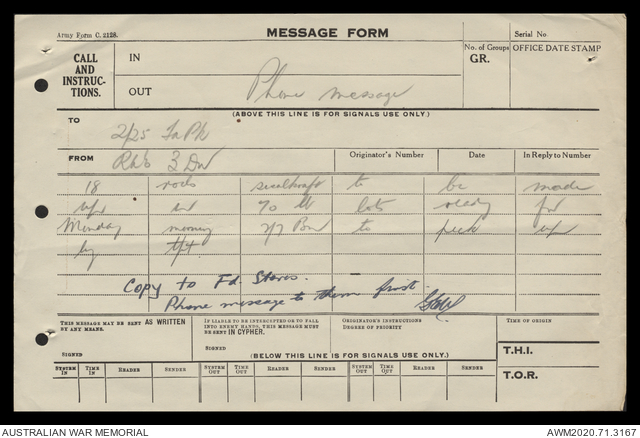 Army Form C. 2128.
MESSAGE FORM
Serial No.
CALL AND INSTRUC-TIONS.
IN
OUT
Phone message
No. of Groups GR.
OFFICE DATE STAMP
(ABOVE THIS LINE IS FOR SIGNALS USE ONLY.)
TO
2/25 Fd Pk
FROM
3 Div
Originator's Number
Date
In Reply to Number
18 to be made
up in 70 lb lots ready for
Monday 2/7 to pick up
by
Copy to Fd. Stores.
Phone message to them first.
THIS MESSAGE MAY BE SENT AS WRITTEN BY ANY MEANS.
SIGNED
IF LIABLE TO BE INTERCEPTED OR TO FALL INTO ENEMY HANDS, THIS MESSAGE MUST BE SENT IN CYPHER.
SIGNED
ORIGINATOR'S INSTRUCTIONS
DEGREE OF PRIORITY
TIME OF ORIGIN
(BELOW THIS LINE IS FOR SIGNALS USE ONLY.)
T.H.I.
T.O.R.
SYSTEM IN
TIME IN
READER
SENDER
SYSTEM OUT
TIME OUT
READER
SENDER
SYSTEM OUT
TIME OUT
READER
SENDER
AUSTRALIAN WAR MEMORIAL
AWM2020.71.3167